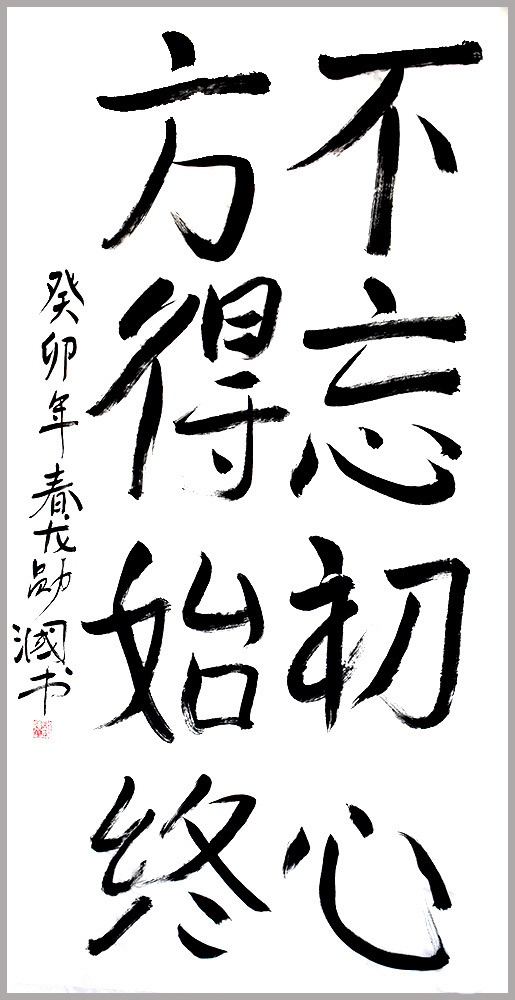 不忘初心
方得始终
癸卯年春戈勋国书